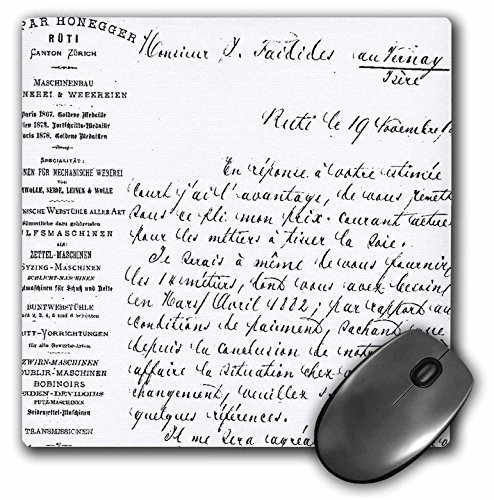 PAR HONEGGER
RÜTI
CANTON ZÜRICH
MASCHINENBAU
NEREI & WEBEREIEN
Paris 1867. Goldene Medaille
Wien 1873. Fortschritts-Medaille
Paris 1878. Goldene Medaille
SPECIALITÄT:
NEN FÜR MECHANISCHE WEBEREI
VON
WOLLE, SEIDE, LEINEN & WOLLE
NISCHE WEBSTÜHLE ALLER ART
LFSMASCHINEN
ALS:
ZETTEL-MASCHINEN
SYZING-MASCHINEN
SCHLICHT-MASCHINEN
BUNTWEBSTÜHLE
ITT-VORRICHTUNGEN
für alle Gewebe-Arten.
ZWIRN-MASCHINEN
OUBLIR-MASCHINEN
BOBINOIRS
PUTZ-MASCHINEN
Seidenzettel-Maschinen
TRANSMISSIONEN
Monsieur J. Faidides au Vernay
Isère
Ruti le 19 Novembre
En réponse à votre estimée
court j'ai l'avantage, de vous remett
sous ce pli mon prix-courant
pour les métiers à tisser la soie.
Je serais à même de vous fournir
les métiers, dont vous avez besoin
en Mars/Avril 1882; par rapport au
conditions de paiement, sachant que
depuis la conclusion de not
affaire la situation chez
changement, veuillez
quelques références.
Il me sera agréa